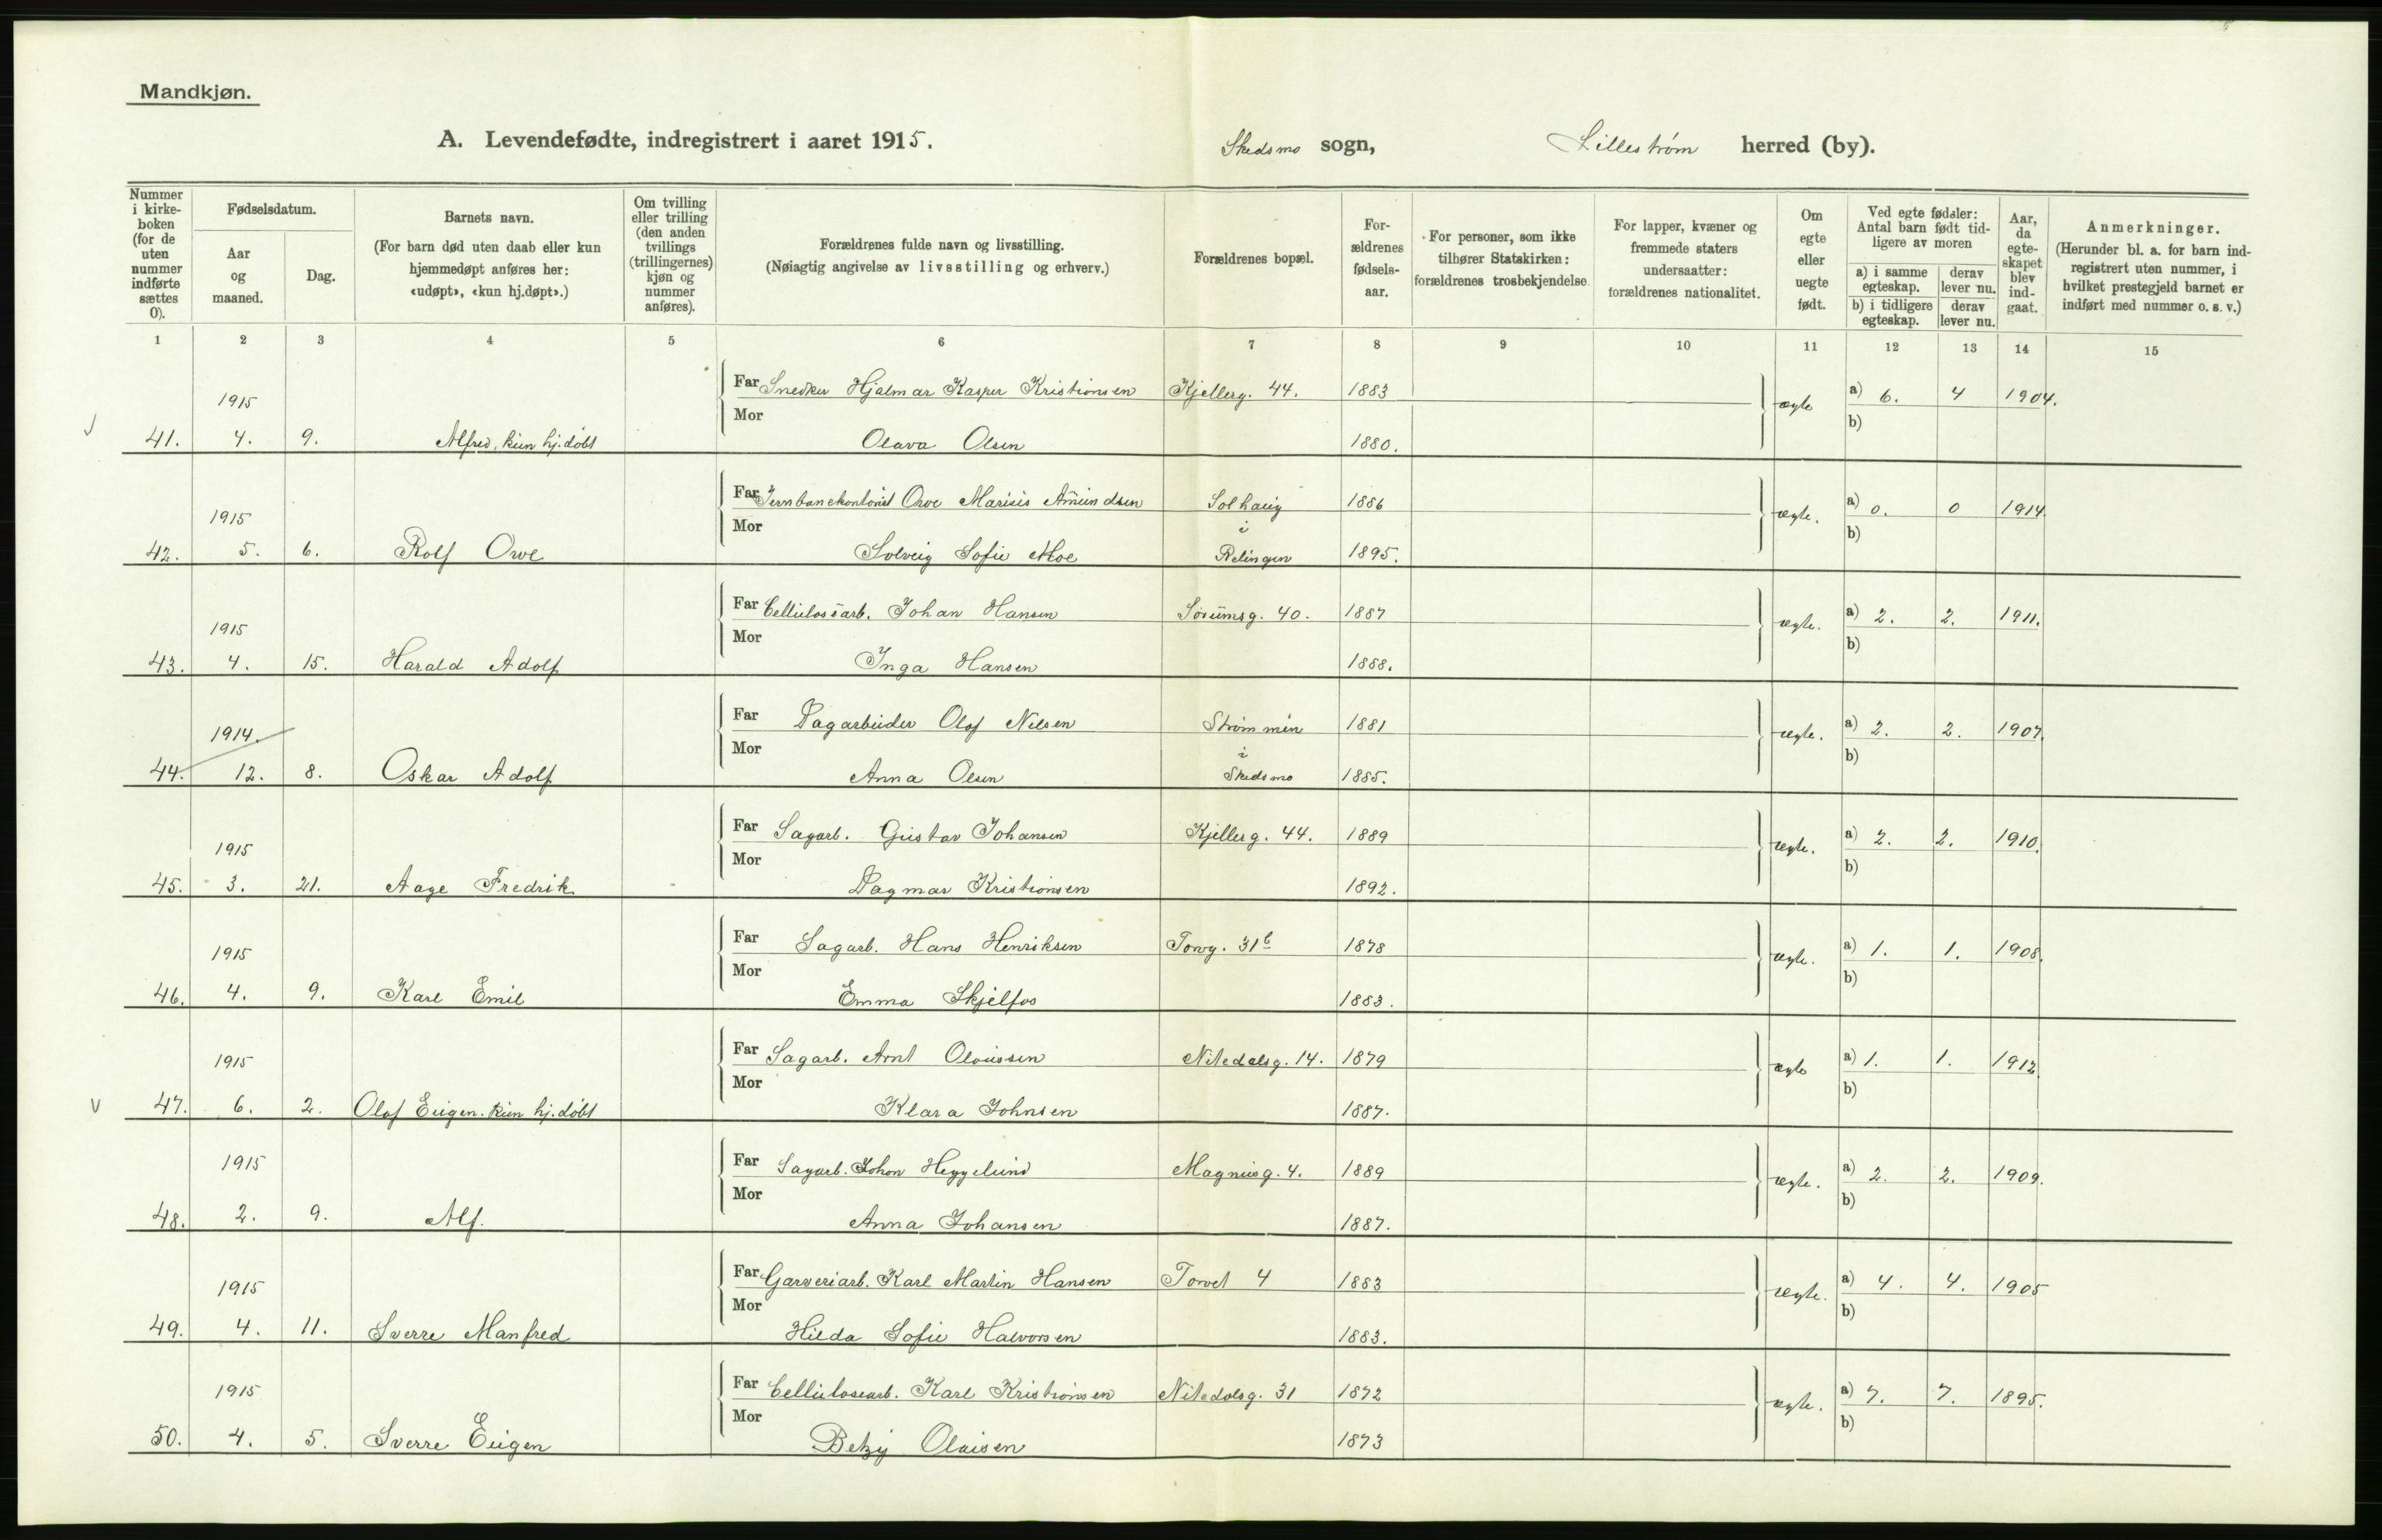 Mandkjøn.
A. Levendefødte, indregistrert i aaret 1915. Skedsmo sogn, Lillestrøm herred (by).
Nummer i kirke-boken (for de uten nummer indførte sættes 0).
Fødselsdatum.
Aar og maaned.
Dag.
Barnets navn.
(For barn død uten daab eller kun hjemmedøpt anføres her: «udøpt», «kun hj.døpt».)
Om tvilling eller trilling (den anden tvillings (trillingernes) kjøn og nummer anføres).
Forældrenes fulde navn og livsstilling.
(Nøiagtig angivelse av livsstilling og erhverv.)
Forældrenes bopæl.
For-ældrenes fødsels-aar.
For personer, som ikke tilhører Statskirken: forældrenes trosbekjendelse.
For lapper, kvæner og fremmede staters undersaatter: forældrenes nationalitet.
Om egte eller uegte født.
Ved egte fødsler: Antal barn født tid-ligere av moren
a) i samme egteskap. derav lever nu.
b) i tidligere egteskap. derav lever nu.
Aar, da egte-skapet blev ind-gaat.
Anmerkninger.
(Herunder bl. a. for barn ind-registrert uten nummer, i hvilket prestegjeld barnet er indført med nummer o. s. v.)
1 2 3 4 5 6 7 8 9 10 11 12 13 14 15
1915 Far Snedker Hjalmar Kasper Kristiansen Kjellerg. 44. 1883 ægte a) 6. 4 1904.
41. 4. 9. Alfred, kun hj.døbt Mor Olava Olsen 1880. b)
1915 Far Jernbanekontorist Owe Marius Amundsen Solhaug i 1886 ægte. a) 0. 0 1914.
42. 5. 6. Rolf Owe Mor Solveig Sofie Moe Relingen 1895. b)
1915 Far Cellulosearb. Johan Hansen Sørumsg. 40. 1887 ægte. a) 2. 2. 1911.
43. 4. 15. Harald Adolf Mor Inga Hansen 1888. b)
1914. Far Dagarbeider Olof Nilsen Strømmen i 1881 ægte. a) 2. 2. 1907.
44. 12. 8. Oskar Adolf Mor Anna Olsen Skedsmo 1885. b)
1915 Far Sagarb. Gustav Johansen Kjellerg. 44. 1889 ægte. a) 2. 2. 1910.
45. 3. 21. Aage Fredrik Mor Dagmar Kristiansen 1892. b)
1915 Far Sagarb. Hans Henriksen Torvg. 31b 1878 ægte. a) 1. 1. 1908.
46. 4. 9. Karl Emil Mor Emma Skjelfos 1883. b)
1915 Far Sagarb. Arnt Olaussen Nitedalsg. 14. 1879 ægte a) 1. 1. 1912.
47. 6. 2. Olaf Eugen. kun hj.døbt Mor Klara Johnsen 1887. b)
1915 Far Sagarb. Johan Heggelund Magnusg. 4. 1889 ægte. a) 2. 2. 1909.
48. 2. 9. Alf. Mor Anna Johansen 1887. b)
1915 Far Garveriarb. Karl Martin Hansen Torvet 4 1883 ægte. a) 4. 4. 1905
49. 4. 11. Sverre Manfred Mor Hilda Sofie Halvorsen 1883. b)
1915 Far Cellulosearb. Karl Kristiansen Nitedalsg. 31 1872 ægte. a) 7. 7. 1895.
50. 4. 5. Sverre Eugen Mor Betzy Olaisen 1873 b)